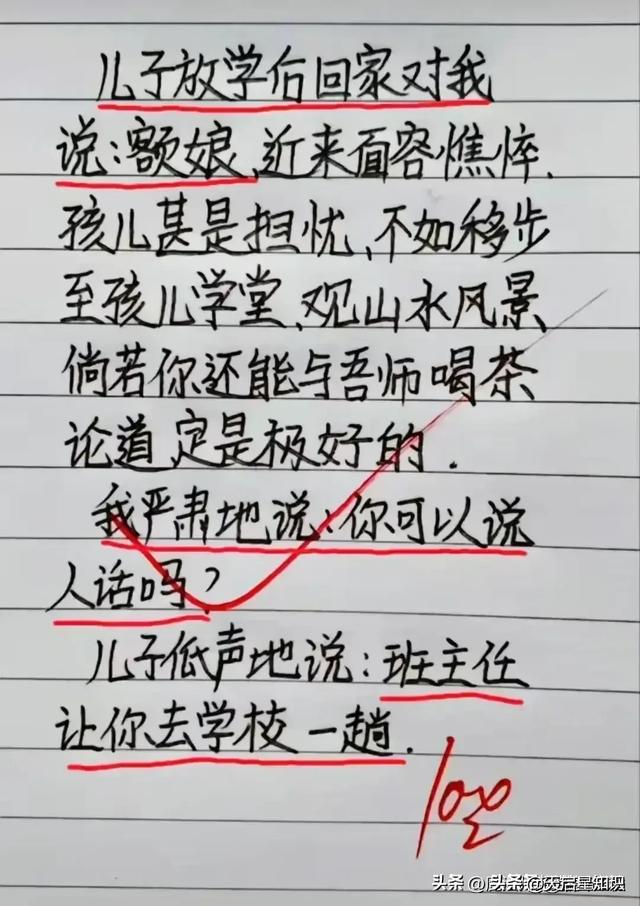 儿子放学后回家对我
说：额娘，近来面容憔悴，
孩儿甚是担忧，不如移步
至孩儿学堂，观山水风景
倘若你还能与吾师喝茶
论道，定是极好的．
我严肃地说：你可以说
人话吗？
儿子低声地说：班主任
让你去学校一趟．
100
头条 @天启星知识